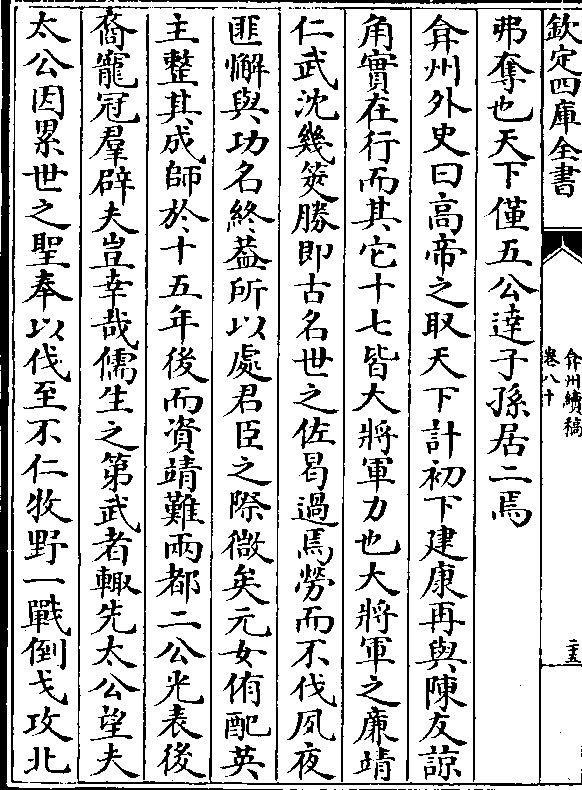 欽定四庫全書
弇州續稿
卷八十
二五
弗奪也天下僅五公達子孫居二焉
弇州外史曰高帝之取天下計初下建康再與陳友諒
角實在行而其它十七皆大將軍力也大將軍之廉靖
仁武沈幾筴勝即古名世之佐曷過焉勞而不伐夙夜
匪懈與功名終葢所以處君臣之際微矣元女侑配英
主整其成師於十五年後而資靖難兩都二公光表後
裔寵冠羣辟夫豈幸哉儒生之第武者輙先太公望夫
太公因累世之聖奉以伐至不仁牧野一戰倒戈攻北